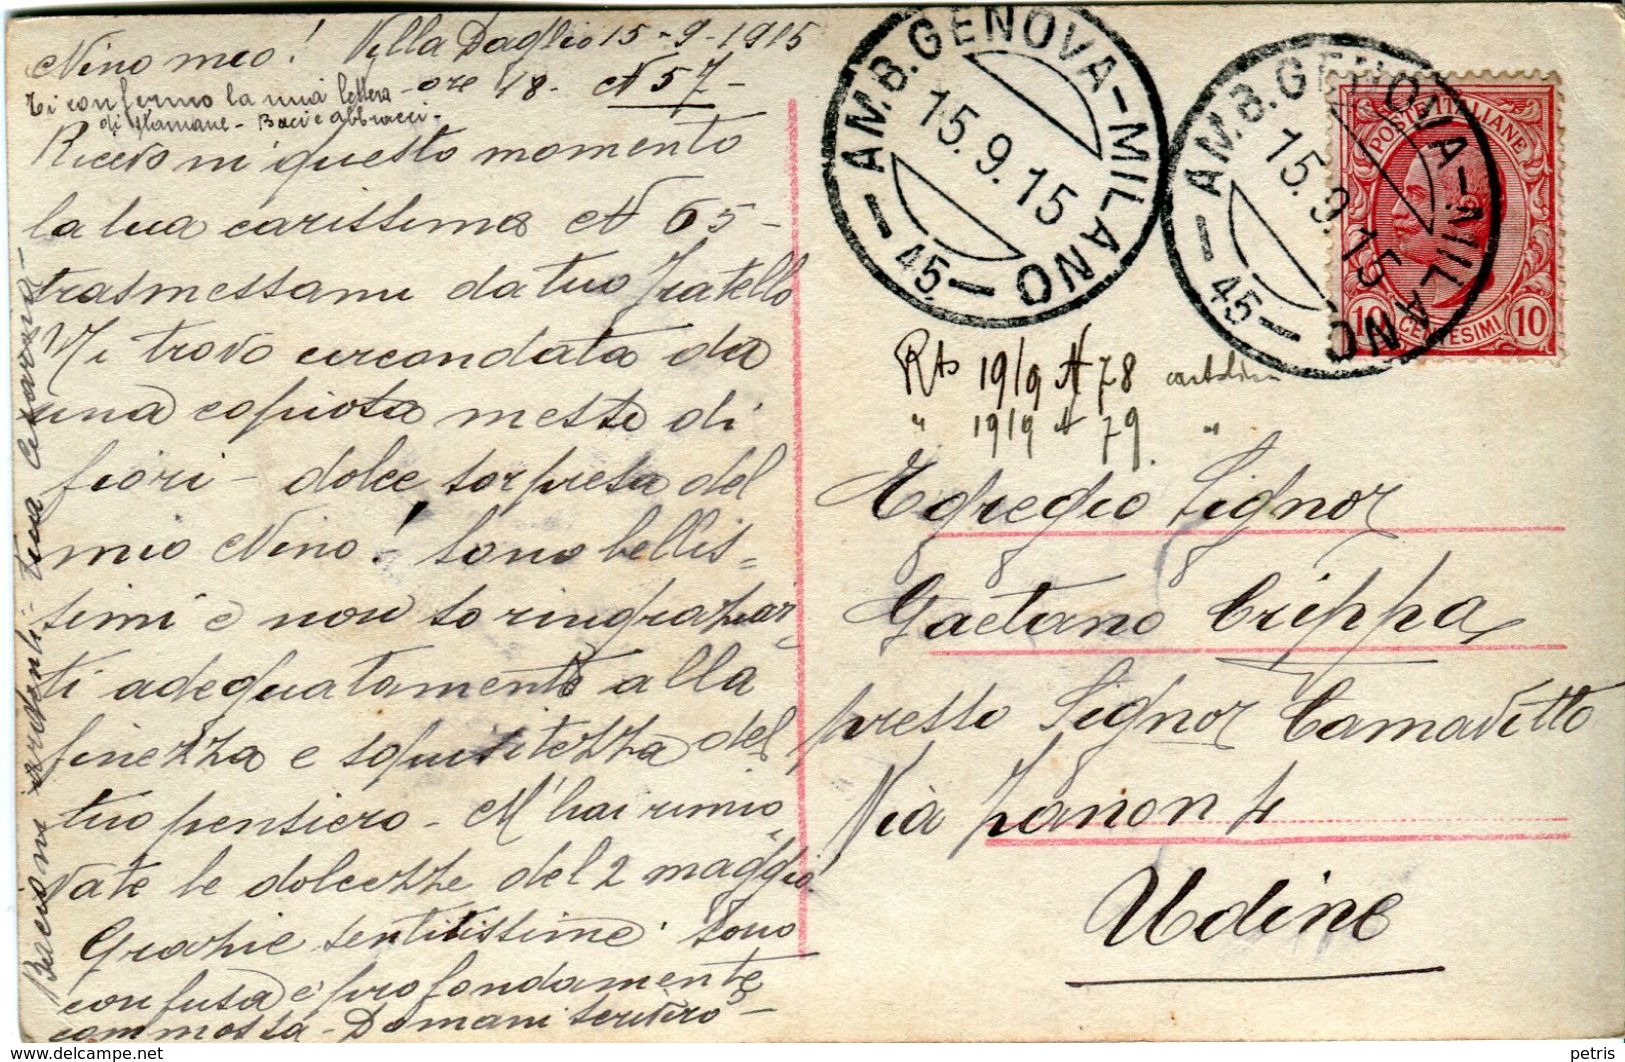 Nino mio! Villa Daglio 15-9-1915
ore 18. N 57-
Ti confermo la mia lettera
di stamane - Baci e abbracci -
Ricevo in questo momento
la tua carissima N 65-
trasmessami da tuo fratello
Mi trovo circondata da
una copiosa messe di
fiori - dolce sorpresa del
mio Nino! Sono bellis-
simi e non so ringraziar-
ti adeguatamente alla
finezza e squisitezza del
tuo pensiero - M'hai rinno-
vate le dolcezze del 2 maggio
Grazie sentitissime. Sono
confusa e profondamente
commossa - Domani scriverò -
Bacioni ardenti - tua
AMB. GENOVA-MILANO
15.9.15
-45-
AMB. GENOVA-MILANO
15.9.15
-45-
POSTE ITALIANE
10 CENTESIMI 10
19/9 N 78 cartolina
" 19/9 N 79 "
Egregio Signor
Gaetano Crippa
presso Signor Camavitto
Via Zanon 4
Udine
www.delcampe.net
petris